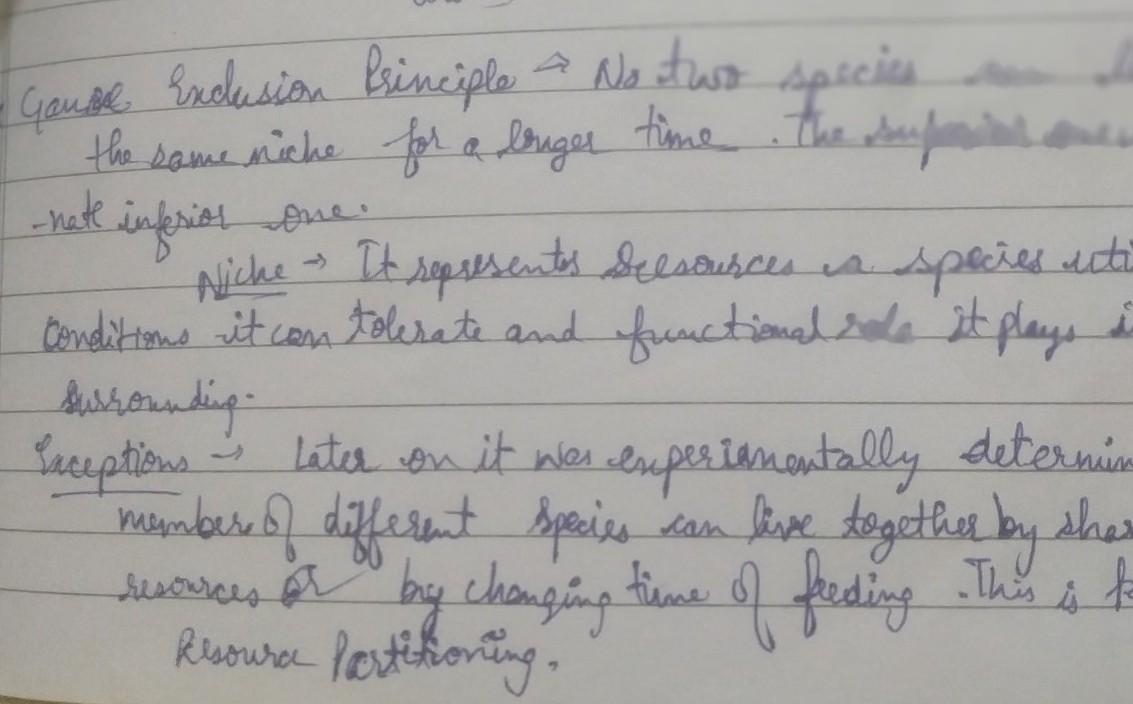 Gause Exclusion Principle → No two species
the same niche for a longer time . The superior
-nate inferior one.
Niche → It represents Resources a species uti
Conditions it can tolerate and functional role it plays i
surrounding.
Exceptions → Later on it was experimentally determin
member of different species can live together by shar
resources or by changing time of feeding . This is
Resource Partitioning.